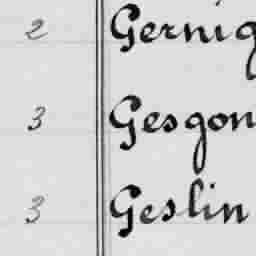 2 Gernig
3 Gesgon
3 Geslin